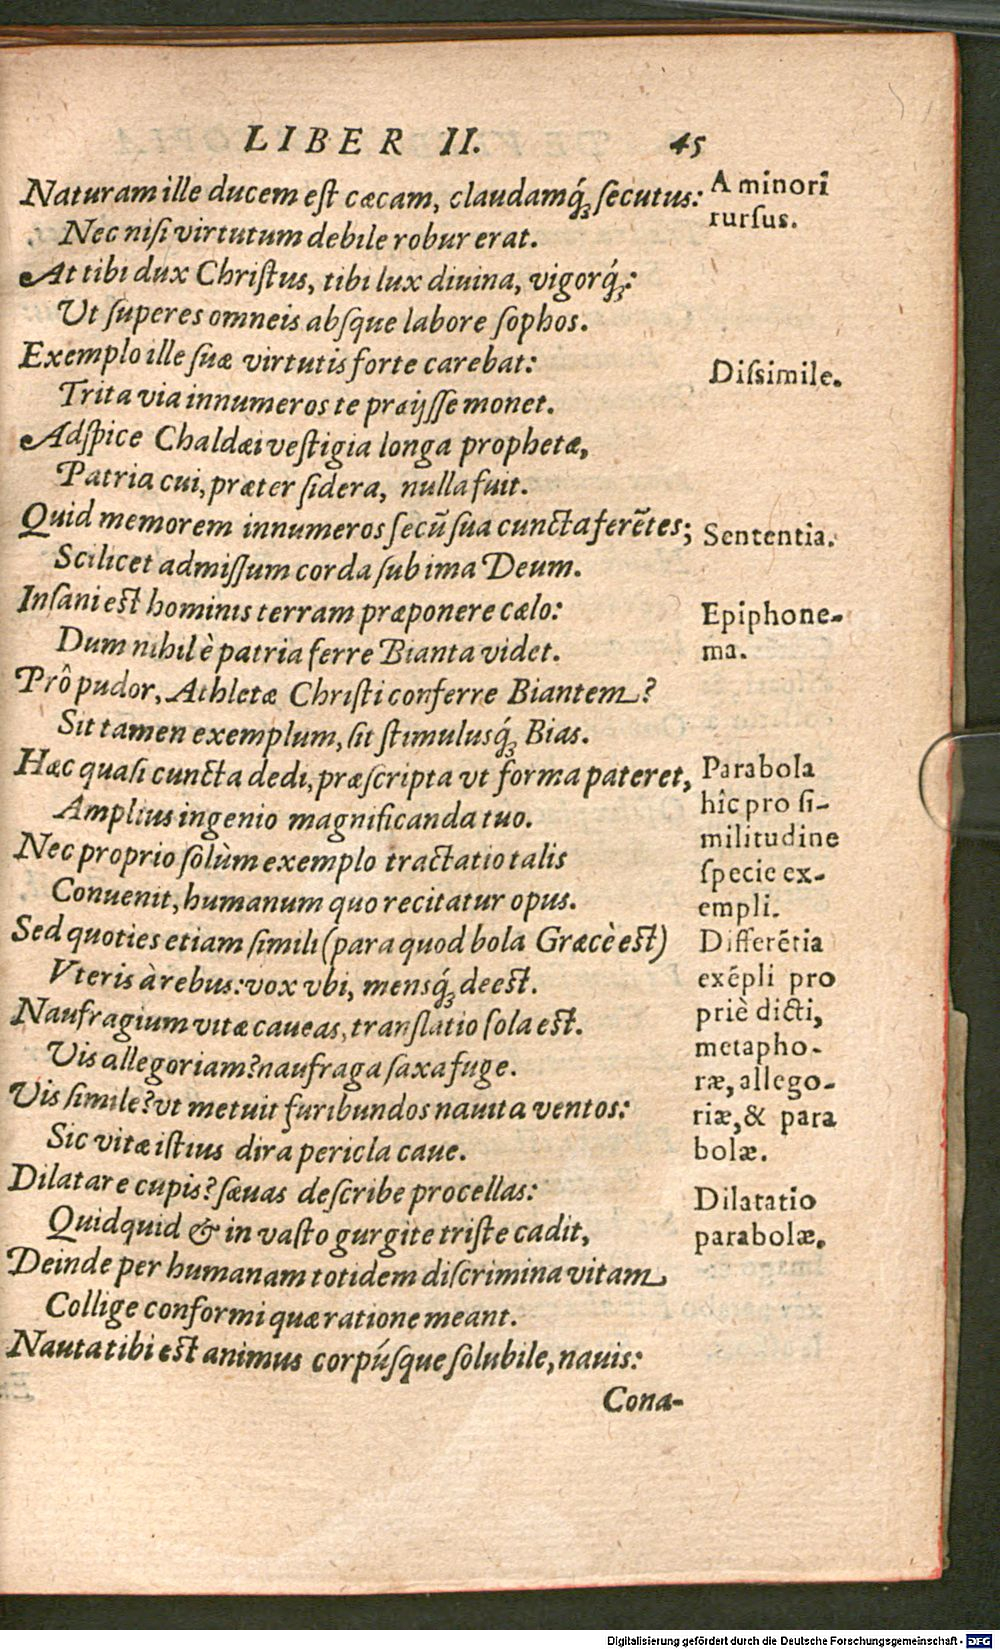 LIBER II. 45
Naturam ille ducem est cæcam, claudamq́; secutus:
Nec nisi virtutum debile robur erat.
At tibi dux Christus, tibi lux diuina, vigorq́;:
Ut superes omneis absque labore sophos.
Exemplo ille suæ virtutis forte carebat:
Trita via innumeros te præijsse monet.
Adspice Chaldæi vestigia longa prophetæ,
Patria cui, præter sidera, nulla fuit.
Quid memorem innumeros secũ sua cuncta ferẽtes;
Scilicet admissum corda sub ima Deum.
Insani est hominis terram præponere cælo:
Dum nihil è patria ferre Bianta videt.
Prô pudor, Athletæ Christi conferre Biantem?
Sit tamen exemplum, sit stimulusq́; Bias.
Hæc quasi cuncta dedi, præscripta vt forma pateret,
Amplius ingenio magnificanda tuo.
Nec proprio solùm exemplo tractatio talis
Conuenit, humanum quo recitatur opus.
Sed quoties etiam simili (para quod bola Græcè est)
Vteris à rebus: vox vbi, mensq́; deest.
Naufragium vitæ caueas, translatio sola est.
Vis allegoriam? naufraga saxa fuge.
Vis simile? vt metuit furibundos nauita ventos:
Sic vitæ istius dira pericla caue.
Dilatare cupis? sæuas describe procellas:
Quidquid & in vasto gurgite triste cadit,
Deinde per humanam totidem discrimina vitam
Collige conformi quæ ratione meant.
Nauta tibi est animus corpúsque solubile, nauis:
Cona-
A minori
rursus.
Dissimile.
Sententia.
Epiphone-
ma.
Parabola
hîc pro si-
militudine
specie ex-
empli.
Differẽtia
exẽpli pro
priè dicti,
metapho-
ræ, allego-
riæ, & para
bolæ.
Dilatatio
parabolæ.
Digitalisierung gefördert durch die Deutsche Forschungsgemeinschaft - DFG